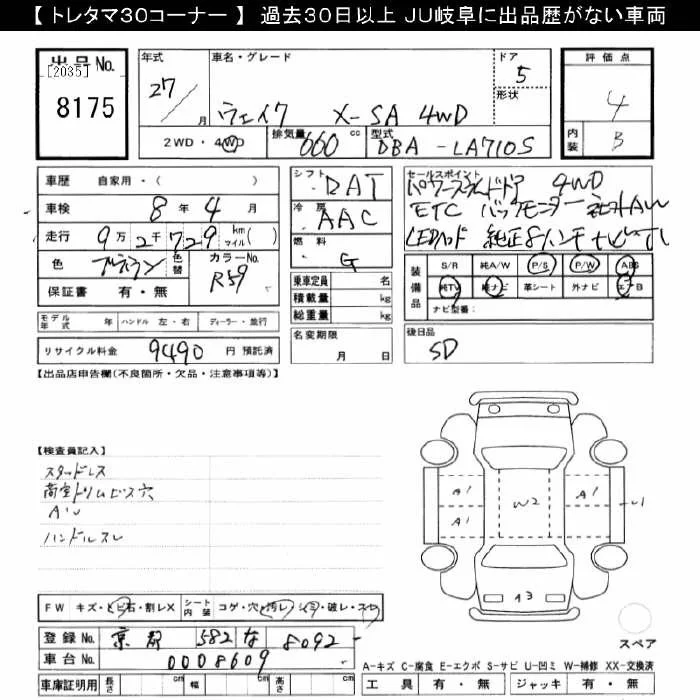 【 トレタマ３０コーナー 】 過去３０日以上 ＪＵ岐阜に出品歴がない車両
出品No. [2035] 8175
年式 27 月
車名・グレード ウェイク X-SA 4WD
ドア 5
形状
2WD・4WD
排気量 660 cc
型式 DBA-LA710S
評価点 4
内装 B
車歴 自家用・( )
車検 8年 4月
走行 9万2千729 km マイル( )
色 ブラウン 色替 カラーNo. R59
保証書 有・無
シフト DAT
冷房 AAC
燃料 G
乗車定員 名
積載量 kg
総重量 kg
セールスポイント
パワースライドドア 4WD
ETC バックモニター 純正AW
LEDヘッド 純正8インチナビTV
装備品 S/R 純A/W P/S P/W ABS
純TV 純ナビ 革シート 外ナビ エアB
ナビ型番:
モデル年式 ハンドル 左・右 ディーラー・並行
リサイクル料金 9490 円 預託済
名変期限 月 日
後日品 SD
【出品店申告欄(不良箇所・欠品・注意事項等)】
【検査員記入】
スタッドレス
荷室トリムビス穴
AU
ハンドルスレ
A1
A1
W2
A1
U1
A3
FW キズ・ヒビ石・割レX シート内装 コゲ・穴・汚レ・シミ・破レ・スレ
登録No. 京都 582 な 8092
車台No. 0008609
車庫証明用 長さ cm 幅 cm 高さ cm
スペア
A-キズ C-腐食 E-エクボ S-サビ U-凹ミ W-補修 XX-交換済
工具 有・無 ジャッキ 有・無